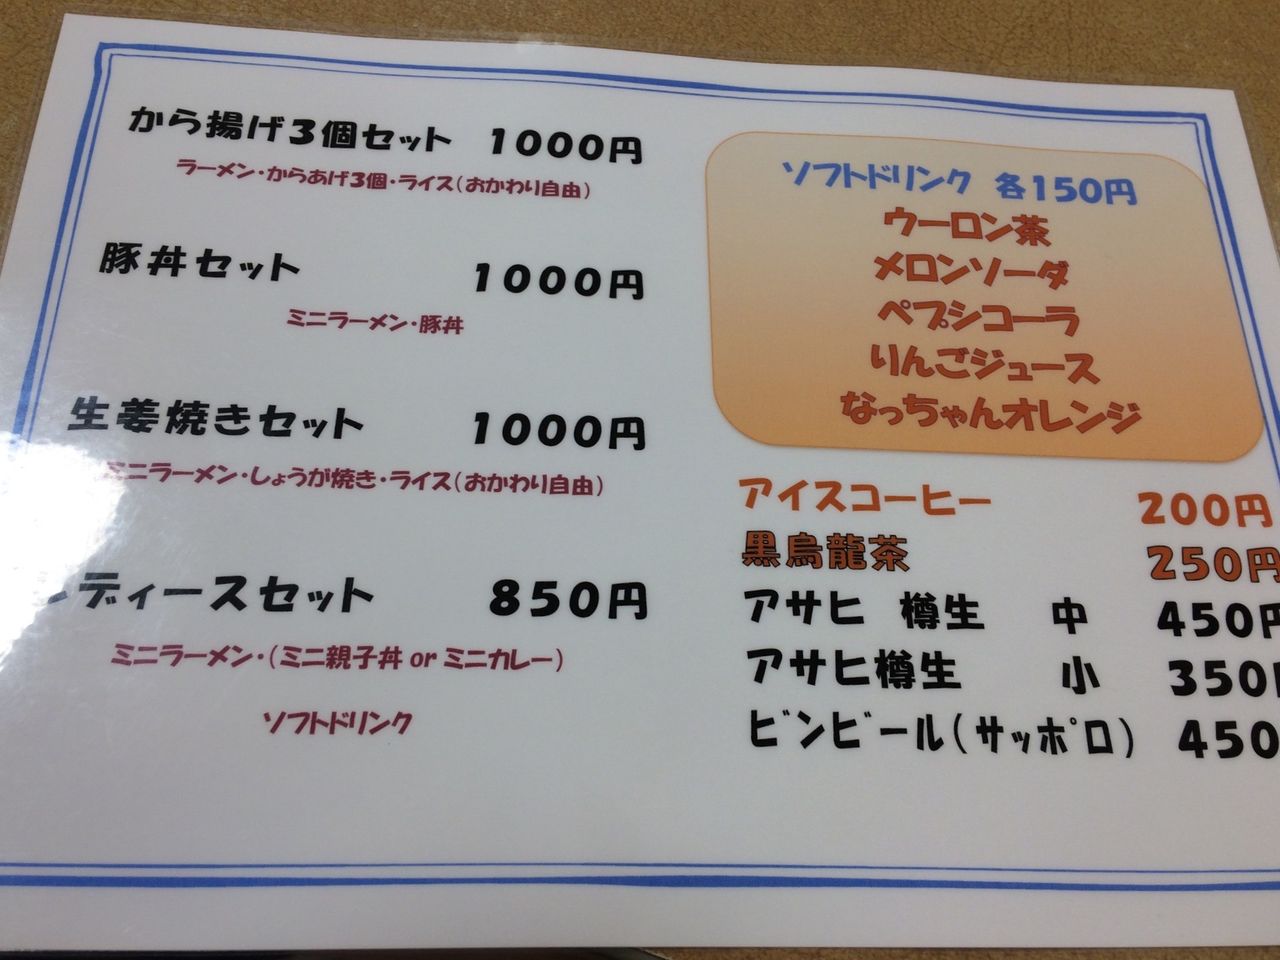 から揚げ3個セット 1000円
ラーメン・からあげ3個・ライス(おかわり自由)
豚丼セット 1000円
ミニラーメン・豚丼
生姜焼きセット 1000円
ミニラーメン・しょうが焼き・ライス(おかわり自由)
レディースセット 850円
ミニラーメン・(ミニ親子丼 or ミニカレー)
ソフトドリンク
ソフトドリンク 各150円
ウーロン茶
メロンソーダ
ペプシコーラ
りんごジュース
なっちゃんオレンジ
アイスコーヒー 200円
黒烏龍茶 250円
アサヒ 樽生 中 450円
アサヒ樽生 小 350円
ビンビール(サッポロ) 450